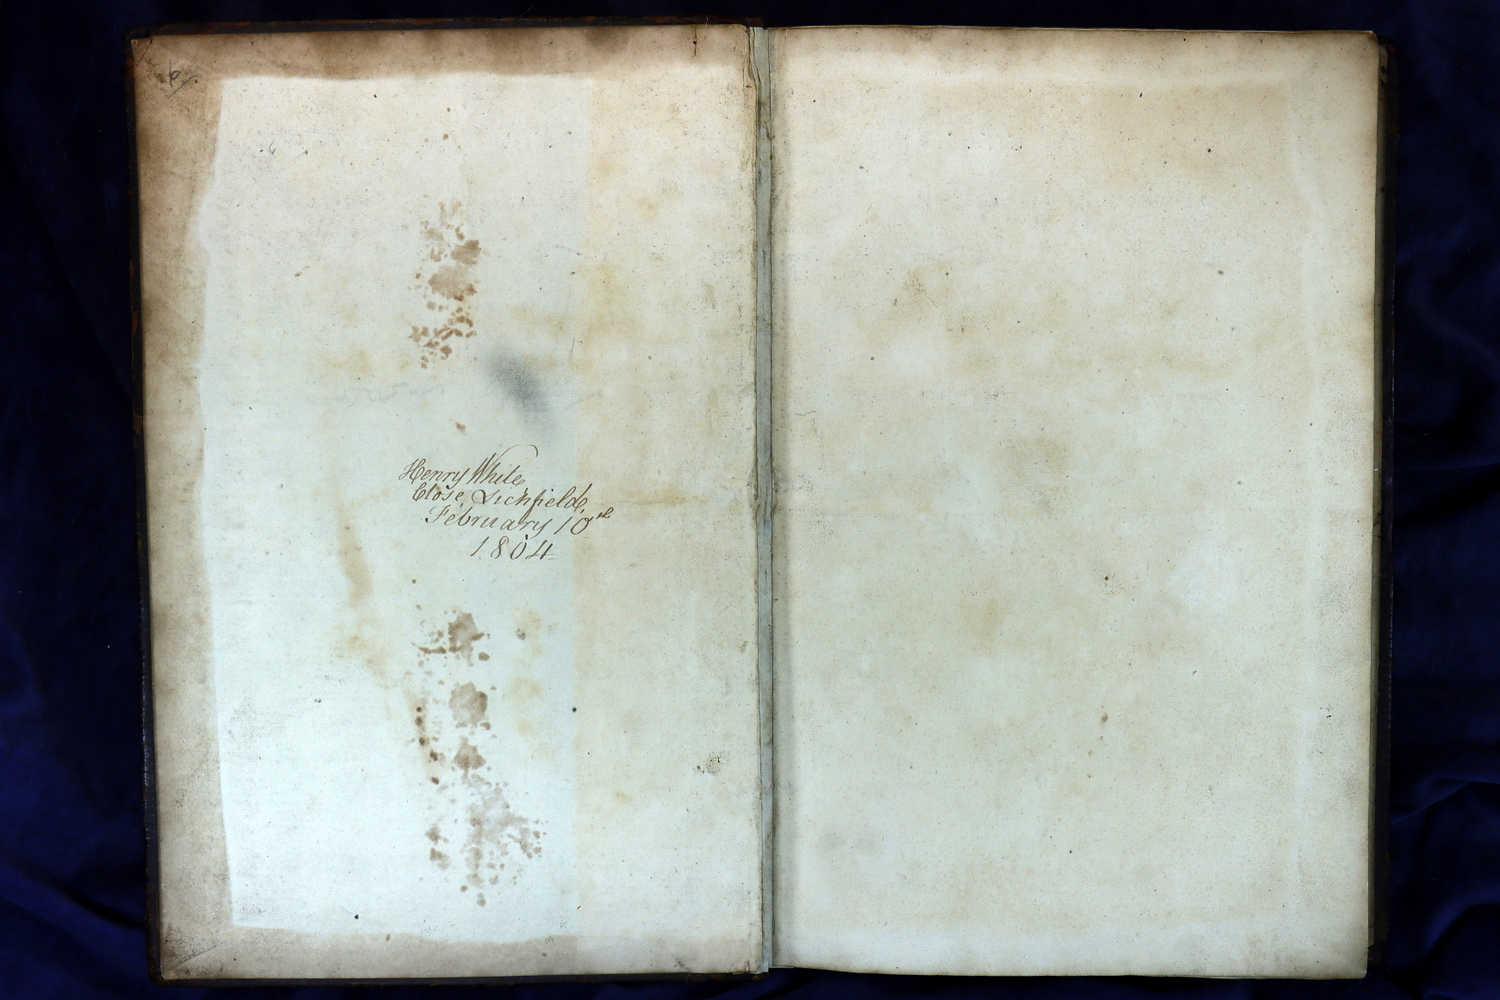 Henry White
Close, Lichfield,
February 10th
1804